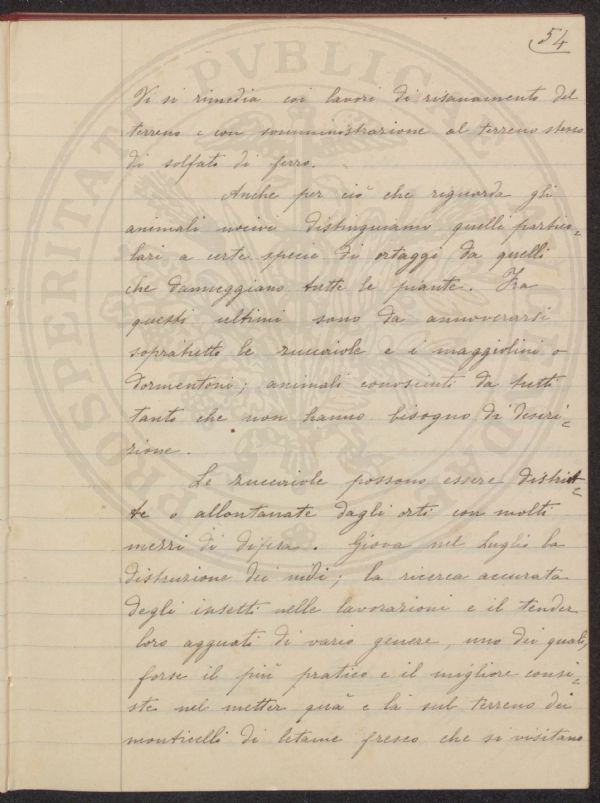 54
Vi si rimedia coi lavori di risanamento del
terreno e con somministrazione al terreno stesso
di solfato di ferro.
Anche per ciò che riguarda gli
animali nocivi distinguiamo quelli partico=
lari a certe specie di ortaggi da quelli
che danneggiano tutte le piante. Fra
questi ultimi sono da annoverarsi
sopratutto le zuccaiole e i maggiolini o
dormentoni; animali conosciuti da tutti
tanto che non hanno bisogno di descri=
zione.
Le zuccaiole possono essere distrut=
te o allontanate dagli orti con molti
mezzi di difesa. Giova nel Luglio la
distruzione dei nidi; la ricerca accurata
degli insetti nelle lavorazioni e il tender
loro agguati di vario genere, uno dei quali,
forse il più pratico e il migliore consi=
ste nel metter quà e là sul terreno dei
monticelli di letame fresco che si visitano
PROSPERITATI PVBLICAE AVGENDAE